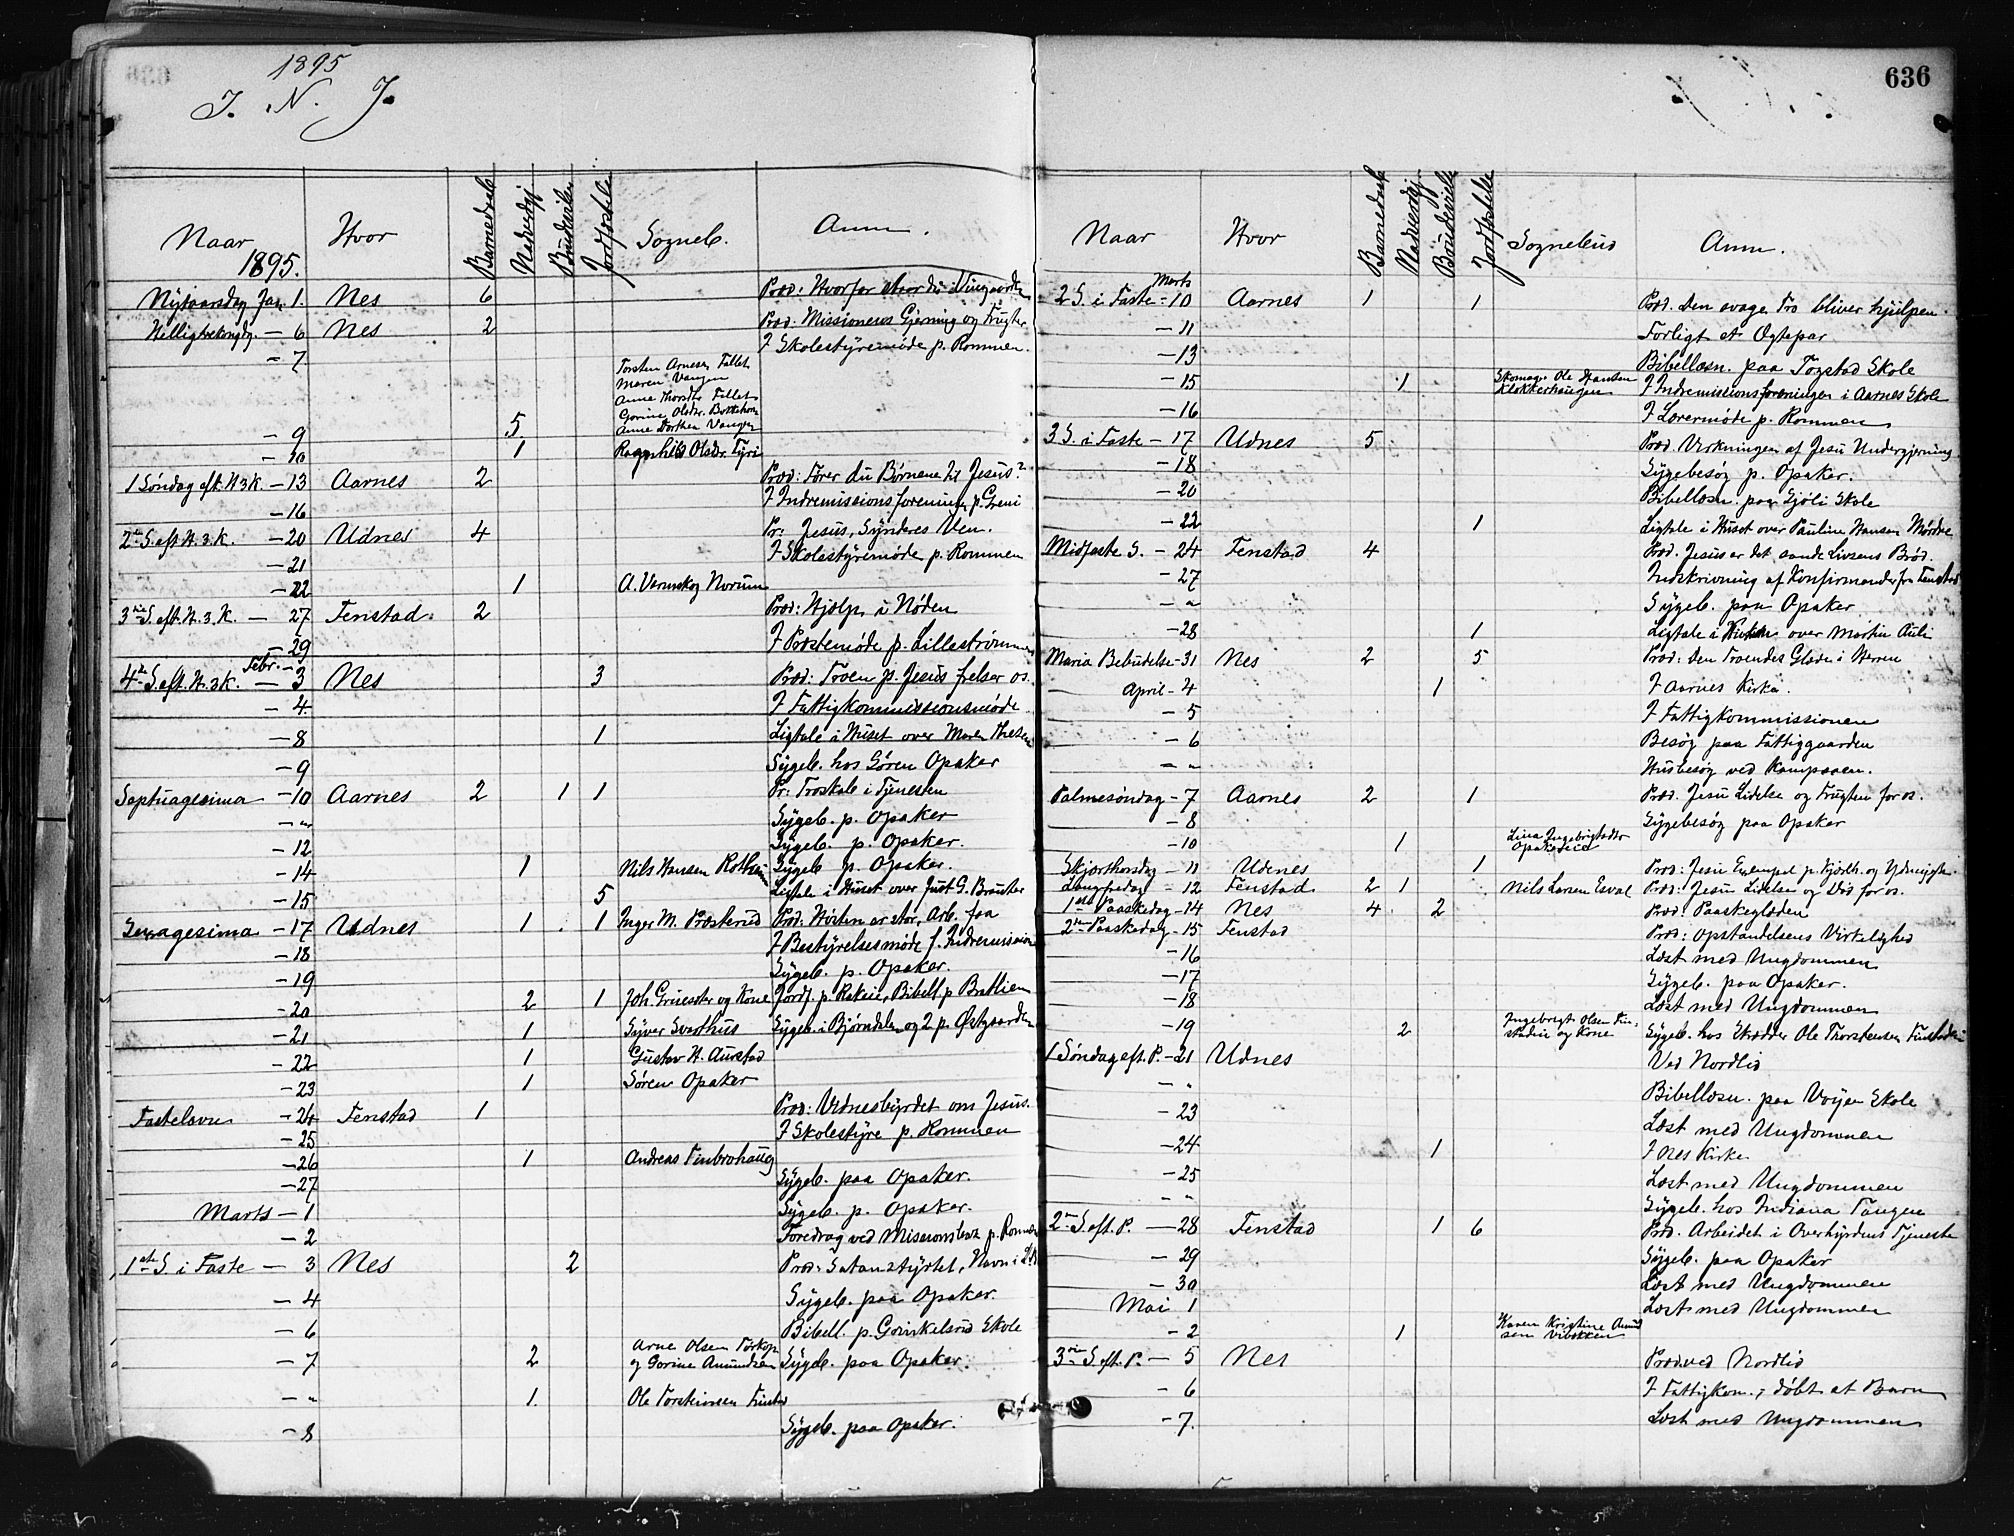 1895
I. N. J.
Naar Hvor Barnedaab Nadverdgj Brudevielse Jordfæstelse Sogneb. Anm.
1895.
Nytaarsdag Jan. 1. Nes 6 Præd: Hvorfor staar du i Vingaarden
Helligtrekongdg. – 6 Nes 2 Præd: Missionens Gjerning og Frugter
– 7 I Skolestyremøde p. Rommen.
Torsten Arnesen Fallet
Maren Vangen
Anne Thorsdtr Fallet
Gorine Olsdtr.
– 9 5 Anne Dorthea Vangen
– 10 1 Ragnhild Olsdr. Fyri
1 Søndag eft. H3K. – 13 Aarnes 2 Præd: Fører du Børnene til Jesus?
– 16 I Indremissionsforeningen p. Greni
2den S. eft. H.3.K. – 20 Udnes 4 Pr: Jesus, Synderes Ven.
– 21 I Skolestyremøde p. Rommen
– 22 1 A. Vermskog Norum
3die S. eft. H.3.K. – 27 Fenstad 2 Præd: Hjælp i Nøden
– 29 I Prostemøde p. Lillestrømmen
4de S. eft. H.3K. Febr. – 3 Nes 3 Præd: Troen p. Jesus frelser os.
– 4 I Fattigkommissionsmøde
– 8 1 Ligtale i Huset over Maren
– 9 Sygeb. hos Søren Opaker
Septuagesima – 10 Aarnes 2 1 1 Pr: Troskab i Tjenesten
– " Sygeb. p. Opaker
– 12 Sygeb. p. Opaker.
– 14 1 Nils Hansen Sygeb p. Opaker.
– 15 5 Ligtale i Huset over Just G.
Sexagesima – 17 Udnes 1 1 Inger M. Præsterud Præd: Høsten er stor, Arb. faa
– 18 I Bestyrelsesmøde f. Indremission
– 19 Sygeb. p. Opaker.
– 20 2 1 Joh. og Kone Jordf. p. Rakeie, Bibell. p Brattlien
– 21 1 Syver Svarthus Sygeb. i Bjørndalen og 2 p. Østgaarden
– 22 1 Gustav H. Aurstad
– 23 1 Søren Opaker
Fastelavn – 24 Fenstad 1 Præd: Vidnesbyrdet om Jesus.
– 25 I Skolestyre p. Rommen
– 26 1 Andreas Finbrohaug
– 27 Sygeb. paa Opaker.
Marts – 1 Sygeb. p. Opaker.
– 2 Foredrag ved p. Rommen
1ste S. i Faste – 3 Nes 2 Præd: Satan styrtet,
– 4 Sygeb. paa Opaker.
– 6 Bibell. p. Gunkelsrud Skole
– 7 2 Arne Olsen
og Gorine Amundsen Sygeb. paa Opaker.
– " 1. Ole
– 8 Sygeb. paa Opaker.
636
Naar Hvor Barnedaab Nadverdgj Brudevielse Jordfæstelse Sognebud Anm.
2 S. i Faste Marts – 10 Aarnes 1 1 Præd. Den svage Tro bliver hjulpen.
– 11 Forligt et Ægtepar
– 13 Bibellæsn. paa Togstad Skole
– 15 1 Skomag. Ole Hansen
Klokkerhaugen I Indremissionsforeningen i Aarnes Skole
– 16 I Lærermøde p. Rommen
3 S. i Faste – 17 Udnes 5 Præd. Virkningen af Jesu Undergjerning
– 18 Sygebesøg p. Opaker.
– 20 Bibellæsn. paa Sjøli Skole
– 22 1 Ligtale i Huset over Pauline Hansen Mørdre
Midfaste S. – 24 Fenstad 4 Præd. Jesus er det sande Livsens Brød.
– 27 Indskrivning af Konfirmander fra Fenstad
– " Sygeb. paa Opaker
– 28 1 Ligtale i Kirken over Martin Auli
Maria Bebudelse – 31 Nes 2 5 Præd: Den Troendes Glæde i Herren
April – 4 1 I Aarnes Kirke.
– 5 I Fattigkommissionen
– 6 Besøg paa Fattiggaarden
– " Husbesøg ved Kampaaen.
Palmesøndag – 7 Aarnes 2 1 Præd. Jesu Lidelse og Frugten for os.
– 8 Sygebesøg paa Opaker
– 10 1 Lina Ingebrigtsdtr
Opakereie
Skjærthorsdag – 11 Udnes 1 Præd: Jesu Exempel p. Kjærlh. og Ydmyghe
Langfredag – 12 Fenstad 2 1 Nils Larsen Præd: Jesu Lidelse og Død for os.
1ste Paaskedag – 14 Nes 4 2 Præd: Paaskeglæden
2den Paaskedag – 15 Fenstad Præd: Opstandelsens Virkelighed
– 16 Læst med Ungdommen
– 17 Sygeb. paa Opaker.
– 18 Læst med Ungdommen
– 19 2 Ingebregt Olsen Fin-
stadeie og Kone Sygeb. hos Skrædder Ole Thorstensen Finstadeie
1 Søndag eft. P. – 21 Udnes Ved Nordlid
– "
– 23 Bibellæsn. paa Vøyen Skole
Læst med Ungdommen
– 24 1 I Nes Kirke
– 25 Læst med Ungdommen
– " Sygeb. hos Indiana Tangen
2den S. eft. P. – 28 Fenstad 1 6 Præd. Arbeidet i Overhyrdens Tjeneste
– 29 Sygeb. paa Opaker
– 30 Læst med Ungdommen
Mai 1 Læst med Ungdommen
– 2 1 Karen Kristine Amund
sen
3die S. eft. P. – 5 Nes Præd. ved Nordlid
– 6 I Fattigkom.; døbt et Barn
– 7. Læst med Ungdommen